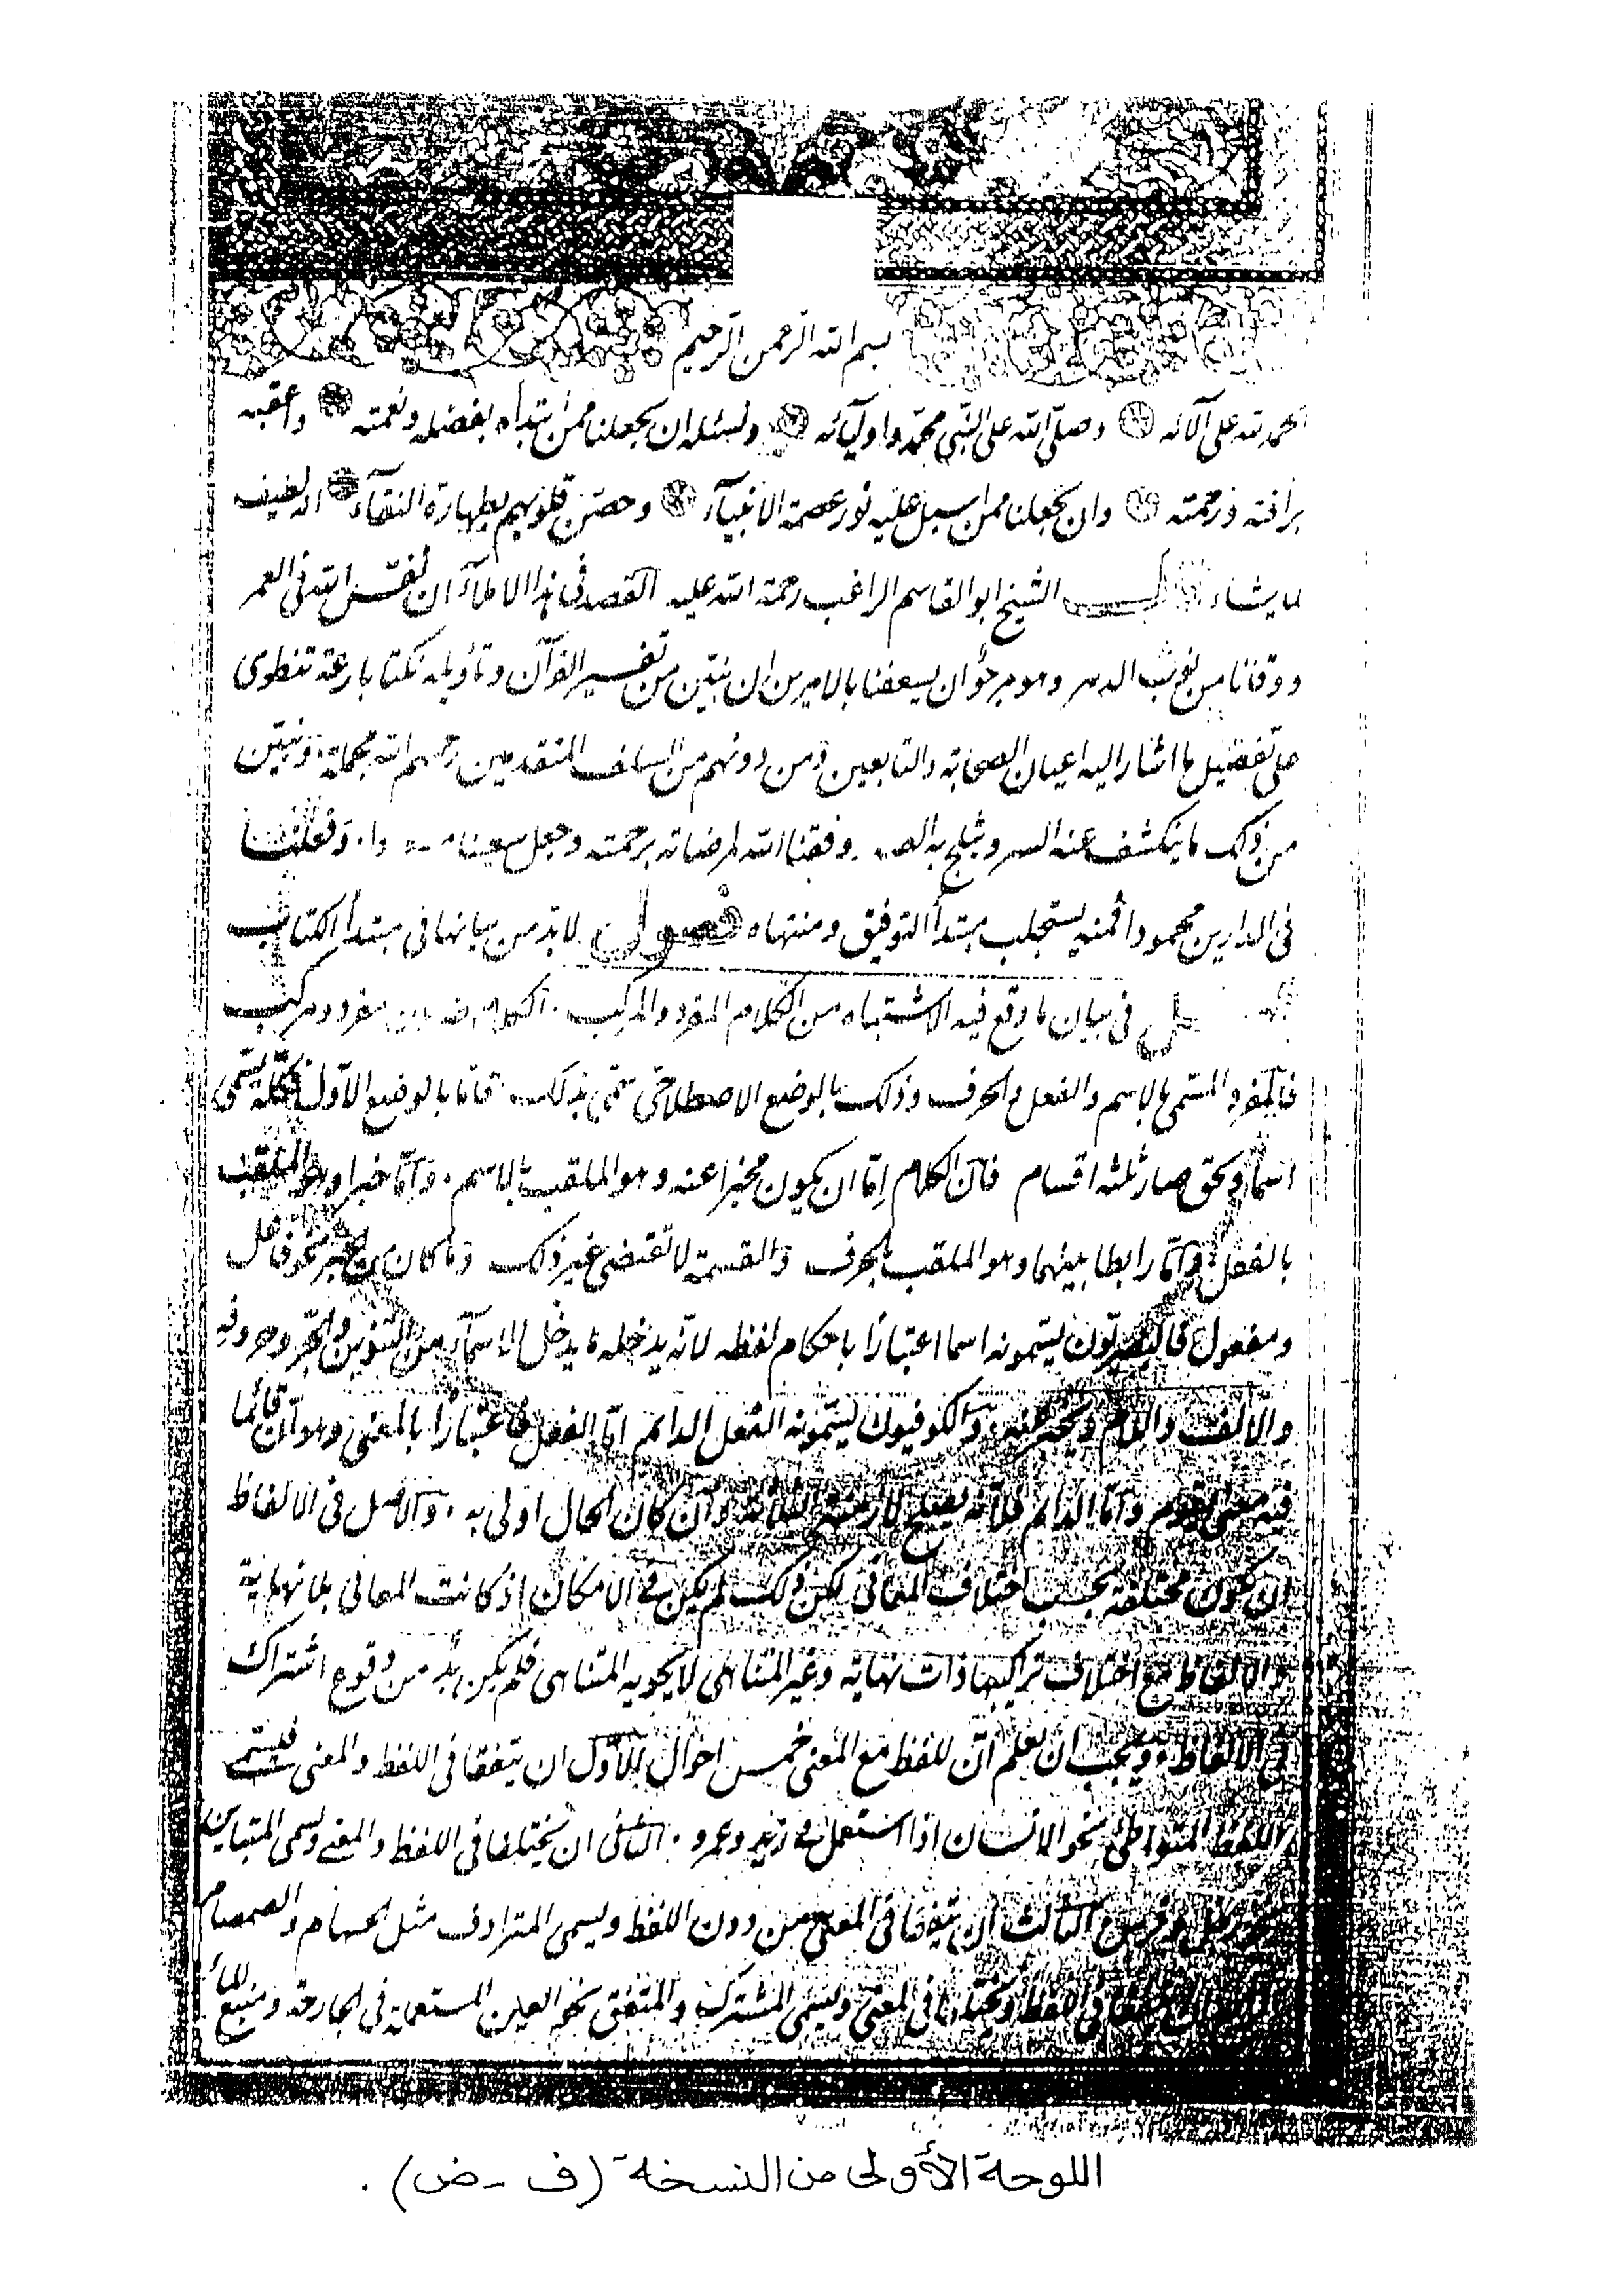 بسم الله الرحمن الرحيم
الحمد لله على آلائه وصلى الله على النبي محمد واوليائه ونسئله ان يجعلنا ممن ابتدأه بفضله ونعمته واعقبه
برافته ورحمته وان يجعلنا ممن اسبل عليه نور عصمة الانبياء وحصن قلوبهم بطهارة النقاء انه لطيف
لما يشاء الشيخ ابو القاسم الراغب رحمة الله عليه القصد في هذا الاملاء ان نفس الله في العمر
ووقانا من نوب الدهر وهو مرجو ان يسعفنا بالامرين ان نبين من تفسير القرآن وتأويله نكتا بارعة تنطوى
على تفصيل ما اشار اليه اعيان الصحابة والتابعين ومن دونهم من السلف المتقدمين رحمهم الله مجملة ونبين
من ذلك ما ينكشف عنه السر ويثلج به وفقنا الله لمرضاته برحمته وجعل سعينا وفعلنا
فى الدارين محمودا فمنه يستجلب مبتدأ التوفيق ومنتهاه فصول لا بد من بيانها فى مبتدأ الكتاب
فى بيان ما وقع فيه الاشتباه من الكلام المفرد والمركب . الكلام مفرد ومركب
فالمفرد المسمى بالاسم والفعل والحرف وذلك بالوضع الاصطلاحى سمى بذلك فاما بالوضع الاول فكله يسمى
اسما وبحق صار ثلثة اقسام فان الكلام اما ان يكون مخبرا عنه وهو الملقب بالاسم . واما خبرا وهو الملقب
بالفعل واما رابطا بينهما وهو الملقب بالحرف والقسمة لا تقتضى غير ذلك وما كان نحو فاعل
ومفعول فالبصريون يسمونه اسما اعتبارا باحكام لفظه لانه يدخله ما يدخل الاسماء من التنوين والجر وحروفه
والالف واللام ويخبر عنه والكوفيون يسمونه الفعل الدائم اما الفعل فاعتبارا بالمعنى وهو ان قائما
فيه معنى يقوم واما الدائم فلأنه يصلح لازمنة الثلاثة وان كان الحال اولى به . والاصل فى الالفاظ
ان تكون مختلفة بحسب اختلاف المعانى لكن ذلك لم يكن فى الامكان اذ كانت المعانى بلا نهاية
والالفاظ مع اختلاف تراكيبها ذات نهاية وغير المتناهى لا يحويه المتناهى فلم يكن بد من وقوع اشتراك
فى الالفاظ ويجب ان يعلم ان للفظ مع المعنى خمس احوال الاول ان يتفقا فى اللفظ والمعنى فيسمى
اللفظ المتواطئ نحو الانسان اذا استعمل فى زيد وعمرو . الثانى ان يختلفا فى اللفظ والمعنى ويسمى المتباين
نحو رجل وفرس الثالث ان يتفقا فى المعنى من دون اللفظ ويسمى المترادف مثل الحسام والصمصام
الرابع ان يتفقا فى اللفظ ويختلفا فى المعنى ويسمى المشترك والمتفق نحو العين المستعملة فى الجارحة ومنبع الماء
اللوحة الأولى من النسخة (ف - ض) .